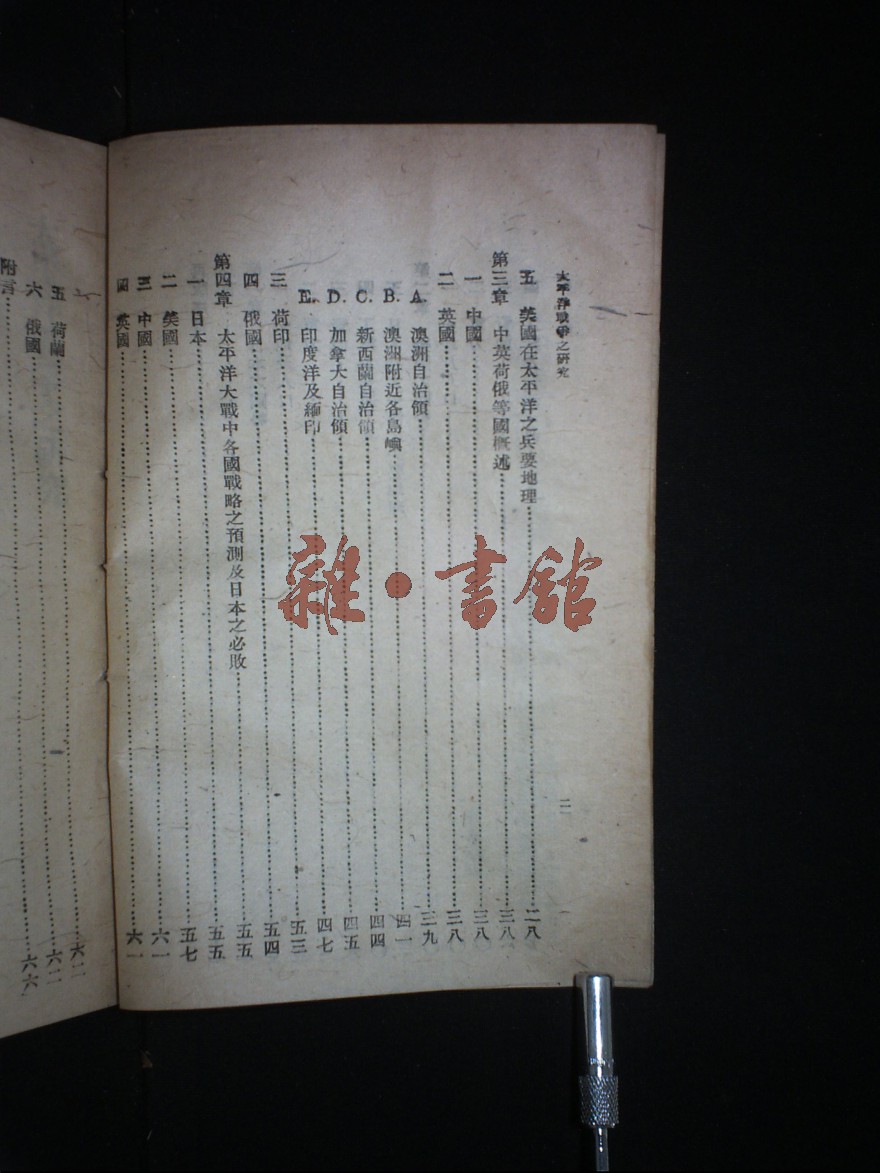 太平洋戰爭之研究
二
五 美國在太平洋之兵要地理……二八
第三章 中英荷俄等國概述……三八
一 中國……三八
二 英國……三八
A. 澳洲自治領……三九
B. 澳洲附近各島嶼……四一
C. 新西蘭自治領……四四
D. 加拿大自治領……四五
E. 印度洋及緬印……四七
三 荷印……五三
四 俄國……五四
第四章 太平洋大戰中各國戰略之預測及日本之必敗……五五
一 日本……五五
二 美國……五七
三 中國……六一
四 英國……六一
五 荷蘭……六二
六 俄國……六二
附言……六六
雜·書館